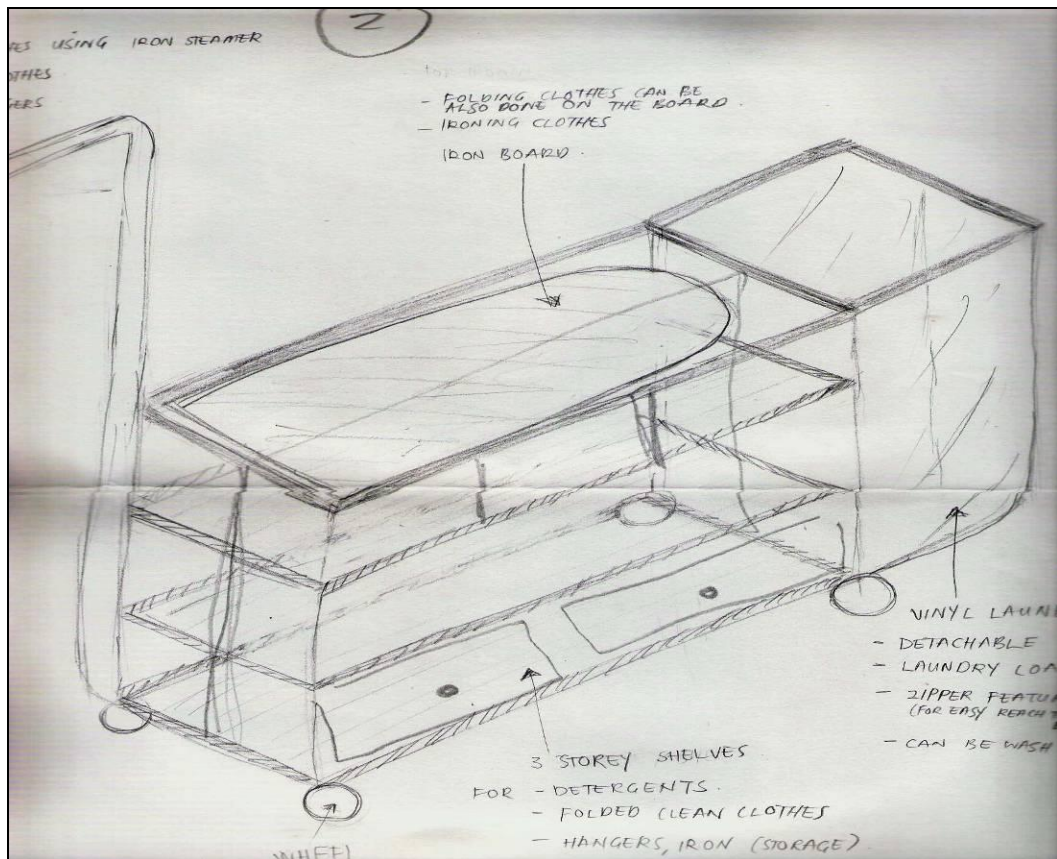 2
USING IRON STEAMER
- FOLDING CLOTHES CAN BE
ALSO DONE ON THE BOARD.
- IRONING CLOTHES
IRON BOARD.
VINYL
- DETACHABLE
- LAUNDRY
- ZIPPER
(FOR EASY REACH
- CAN BE WASH
3 STOREY SHELVES
FOR - DETERGENTS.
- FOLDED CLEAN CLOTHES
- HANGERS, IRON (STORAGE)
WHEEL